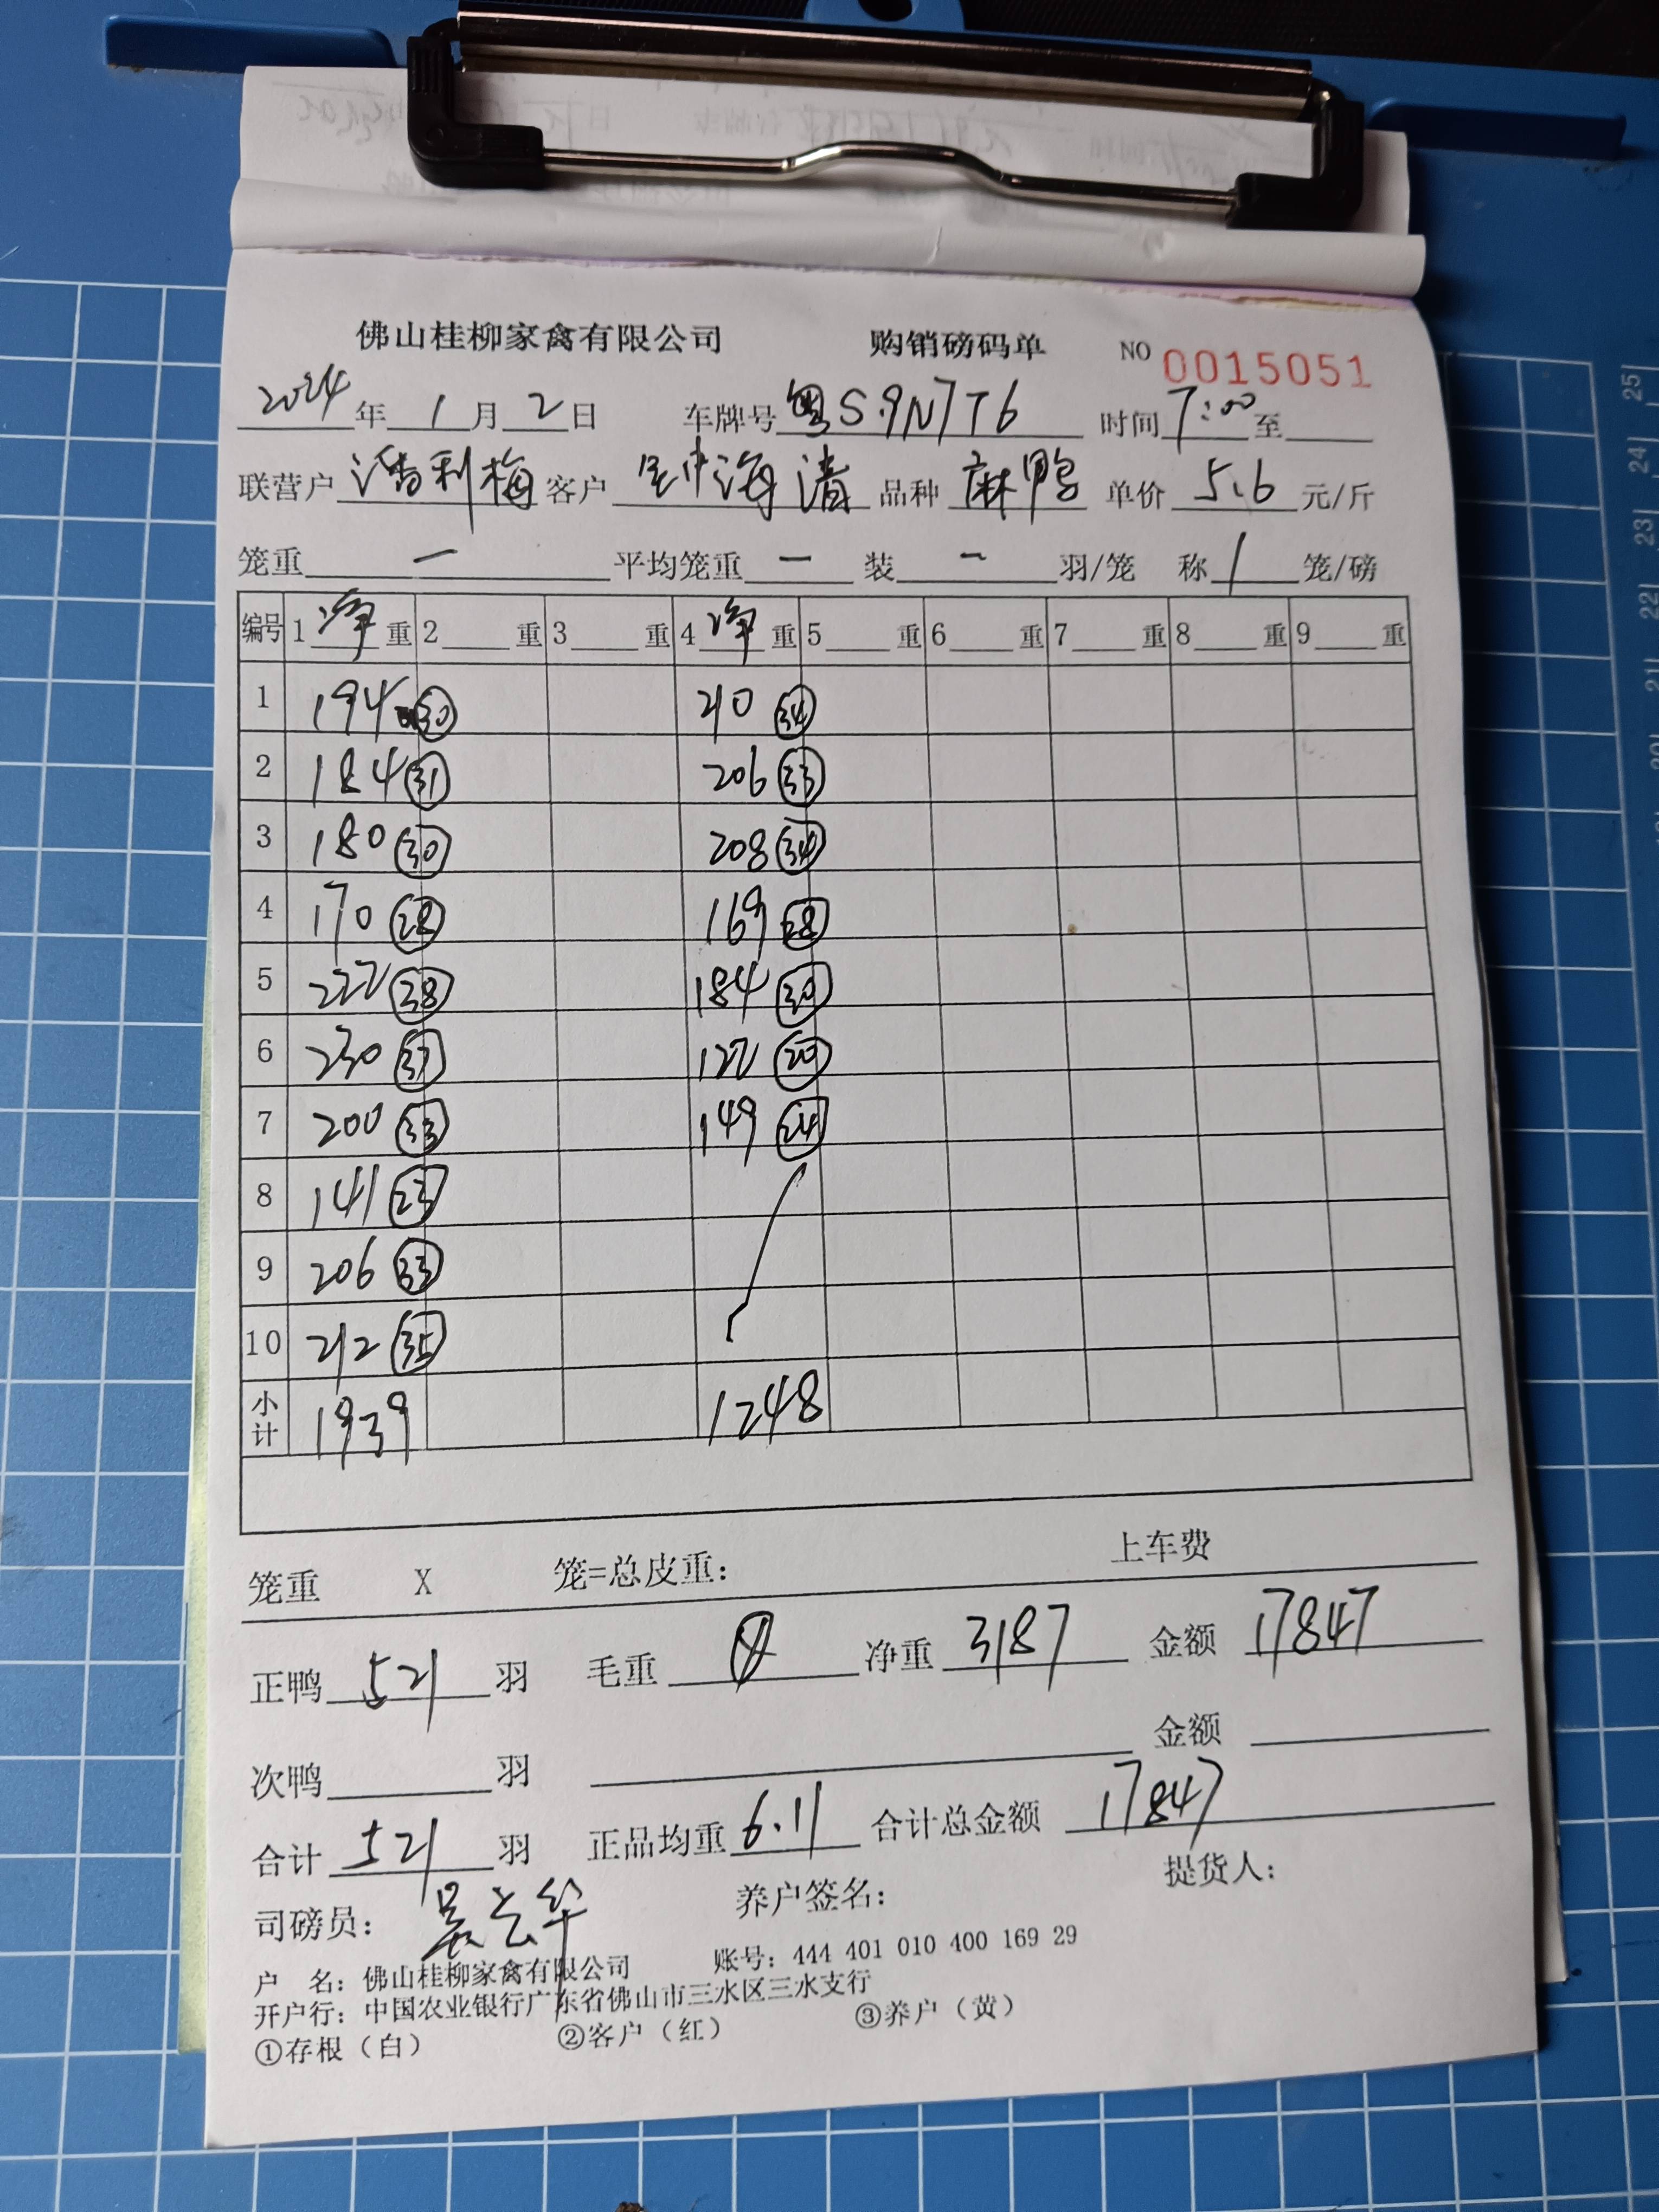 佛山桂柳家禽有限公司 购销磅码单 NO 0015051
2024年1月2日 车牌号 粤S.9N7T6 时间 7:00 至
联营户 潘利梅 客户 海清 品种 麻鸭 单价 5.6 元/斤
笼重 一 平均笼重 一 装 一 羽/笼 称 1 笼/磅
编号 1 净 重 2 重 3 重 4 净 重 5 重 6 重 7 重 8 重 9 重
1 194 30 210 34
2 184 31 206 33
3 180 30 208 34
4 170 28 169 28
5 222 38 184 30
6 230 37 122 20
7 200 33 149 24
8 141 23
9 206 33
10 212 35
小计 1939 1248
笼重 X 笼=总皮重： 上车费
正鸭 521 羽 毛重 净重 3187 金额 17847
次鸭 羽 金额
合计 521 羽 正品均重 6.11 合计总金额 17847
司磅员： 吴云华 养户签名： 提货人：
户 名：佛山桂柳家禽有限公司 账号：444 401 010 400 169 29
开户行：中国农业银行广东省佛山市三水区三水支行
①存根（白） ②客户（红） ③养户（黄）
25
24
23
22
21
20